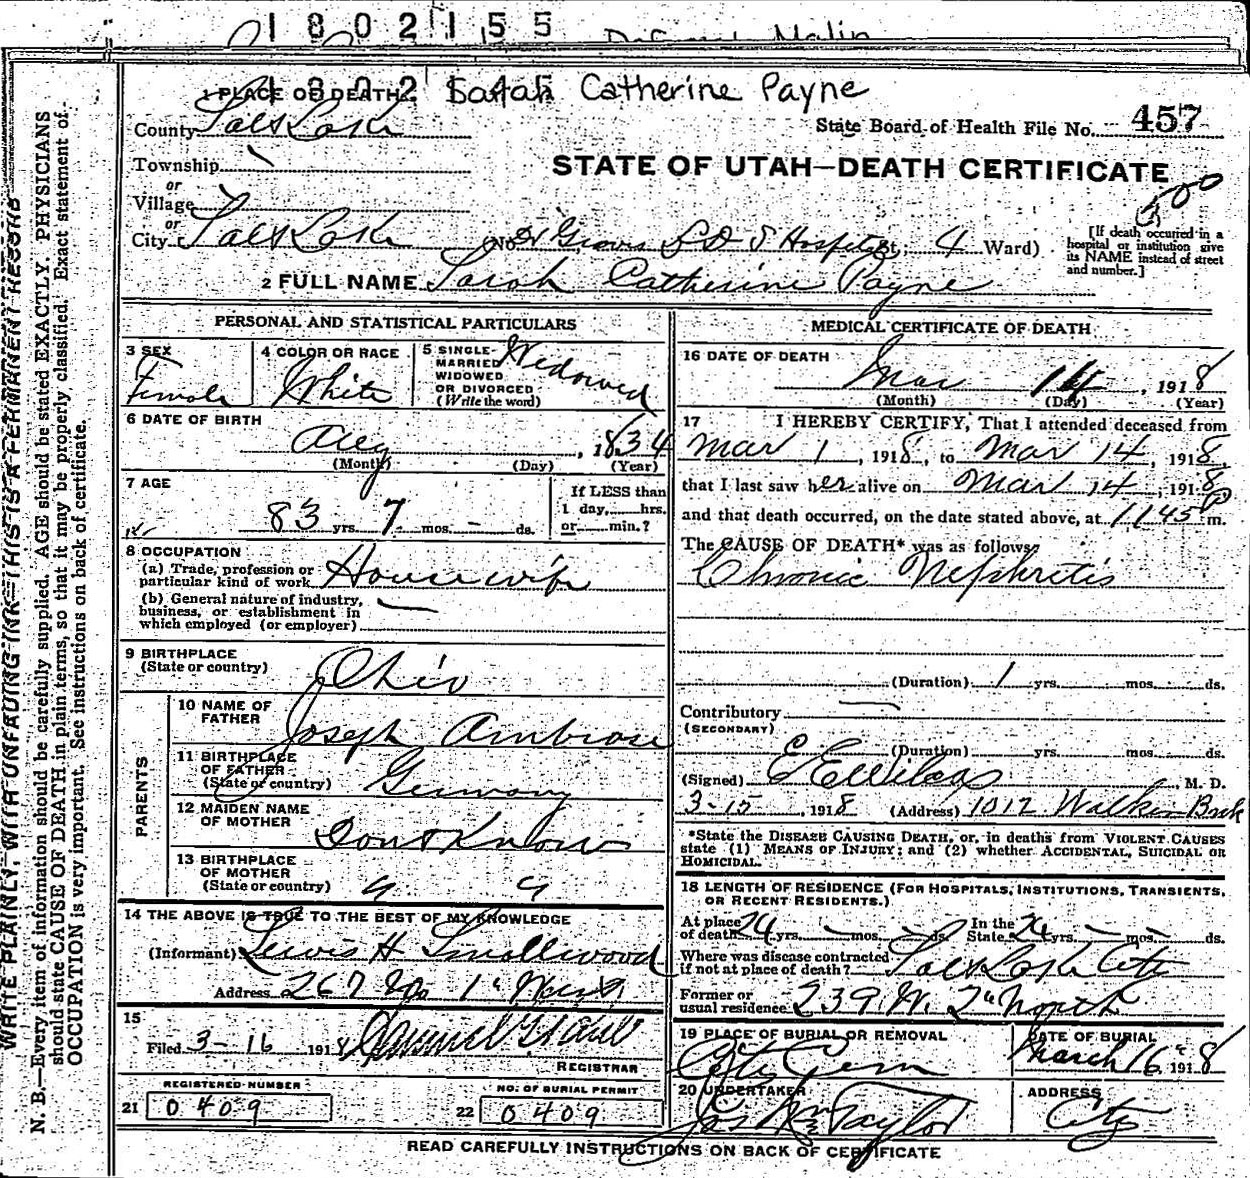 1802155
Sarah Catherine Payne
1 PLACE OF DEATH
County Salt Lake
State Board of Health File No. 457
Township
STATE OF UTAH—DEATH CERTIFICATE
or
Village
or
City Salt Lake No. Groves L D S Hospital St; 4 Ward)
[If death occurred in a
hospital or institution give
its NAME instead of street
and number.]
2 FULL NAME Sarah Catherine Payne
PERSONAL AND STATISTICAL PARTICULARS
3 SEX
Female
4 COLOR OR RACE
White
5 SINGLE
MARRIED
WIDOWED
OR DIVORCED
(Write the word)
Widowed
6 DATE OF BIRTH
Aug , 1834
(Month) (Day) (Year)
7 AGE
83 yrs. 7 mos. - ds.
If LESS than
1 day, hrs.
or min.?
8 OCCUPATION
(a) Trade, profession or
particular kind of work Housewife
(b) General nature of industry,
business, or establishment in
which employed (or employer)
9 BIRTHPLACE
(State or country) Ohio
PARENTS
10 NAME OF
FATHER
Joseph Ambrose
11 BIRTHPLACE
OF FATHER
(State or country) Germany
12 MAIDEN NAME
OF MOTHER
Dont Know
13 BIRTHPLACE
OF MOTHER
(State or country)
14 THE ABOVE IS TRUE TO THE BEST OF MY KNOWLEDGE
(Informant) Lewis H Smallwood
Address 267 No 1" West
15
Filed 3-16 1918
REGISTRAR
REGISTERED NUMBER
21 0409
NO. OF BURIAL PERMIT
22 0409
MEDICAL CERTIFICATE OF DEATH
16 DATE OF DEATH
Mar 14 , 1918
(Month) (Day) (Year)
17 I HEREBY CERTIFY, That I attended deceased from
Mar 1 , 1918, to Mar 14, 1918
that I last saw her alive on Mar 14, 1918
and that death occurred, on the date stated above, at 1145 P m.
The CAUSE OF DEATH* was as follows:
Chronic Nephretis
(Duration) 1 yrs. mos. ds.
Contributory
(SECONDARY)
(Duration) yrs. mos. ds.
(Signed) E E Wilcox, M. D.
3-15, 1918 (Address) 1012 Walker Bnk
*State the DISEASE CAUSING DEATH, or, in deaths from VIOLENT CAUSES
state (1) MEANS OF INJURY; and (2) whether ACCIDENTAL, SUICIDAL OR
HOMICIDAL.
18 LENGTH OF RESIDENCE (FOR HOSPITALS, INSTITUTIONS, TRANSIENTS,
OR RECENT RESIDENTS.)
At place
of death 24 yrs. - mos. - ds. In the
State 24 yrs. - mos. - ds.
Where was disease contracted
if not at place of death? Salt Lake City
Former or
usual residence 239 W. 2" North
19 PLACE OF BURIAL OR REMOVAL
City Cem
DATE OF BURIAL
March 16 1918
20 UNDERTAKER
Jos Wm Taylor
ADDRESS
City
READ CAREFULLY INSTRUCTIONS ON BACK OF CERTIFICATE
WRITE PLAINLY, WITH UNFADING INK—THIS IS A PERMANENT RECORD
N. B.—Every item of information should be carefully supplied. AGE should be stated EXACTLY. PHYSICIANS
should state CAUSE OF DEATH in plain terms, so that it may be properly classified. Exact statement of
OCCUPATION is very important. See instructions on back of certificate.